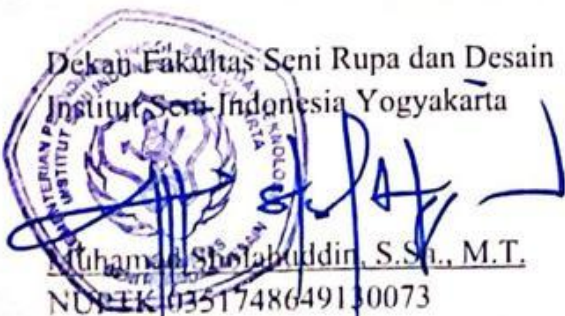 Dekan Fakultas Seni Rupa dan Desain
Institut Seni Indonesia Yogyakarta
Muhamad Sholahuddin, S.Sn., M.T.
NUPTK 0351748649130073